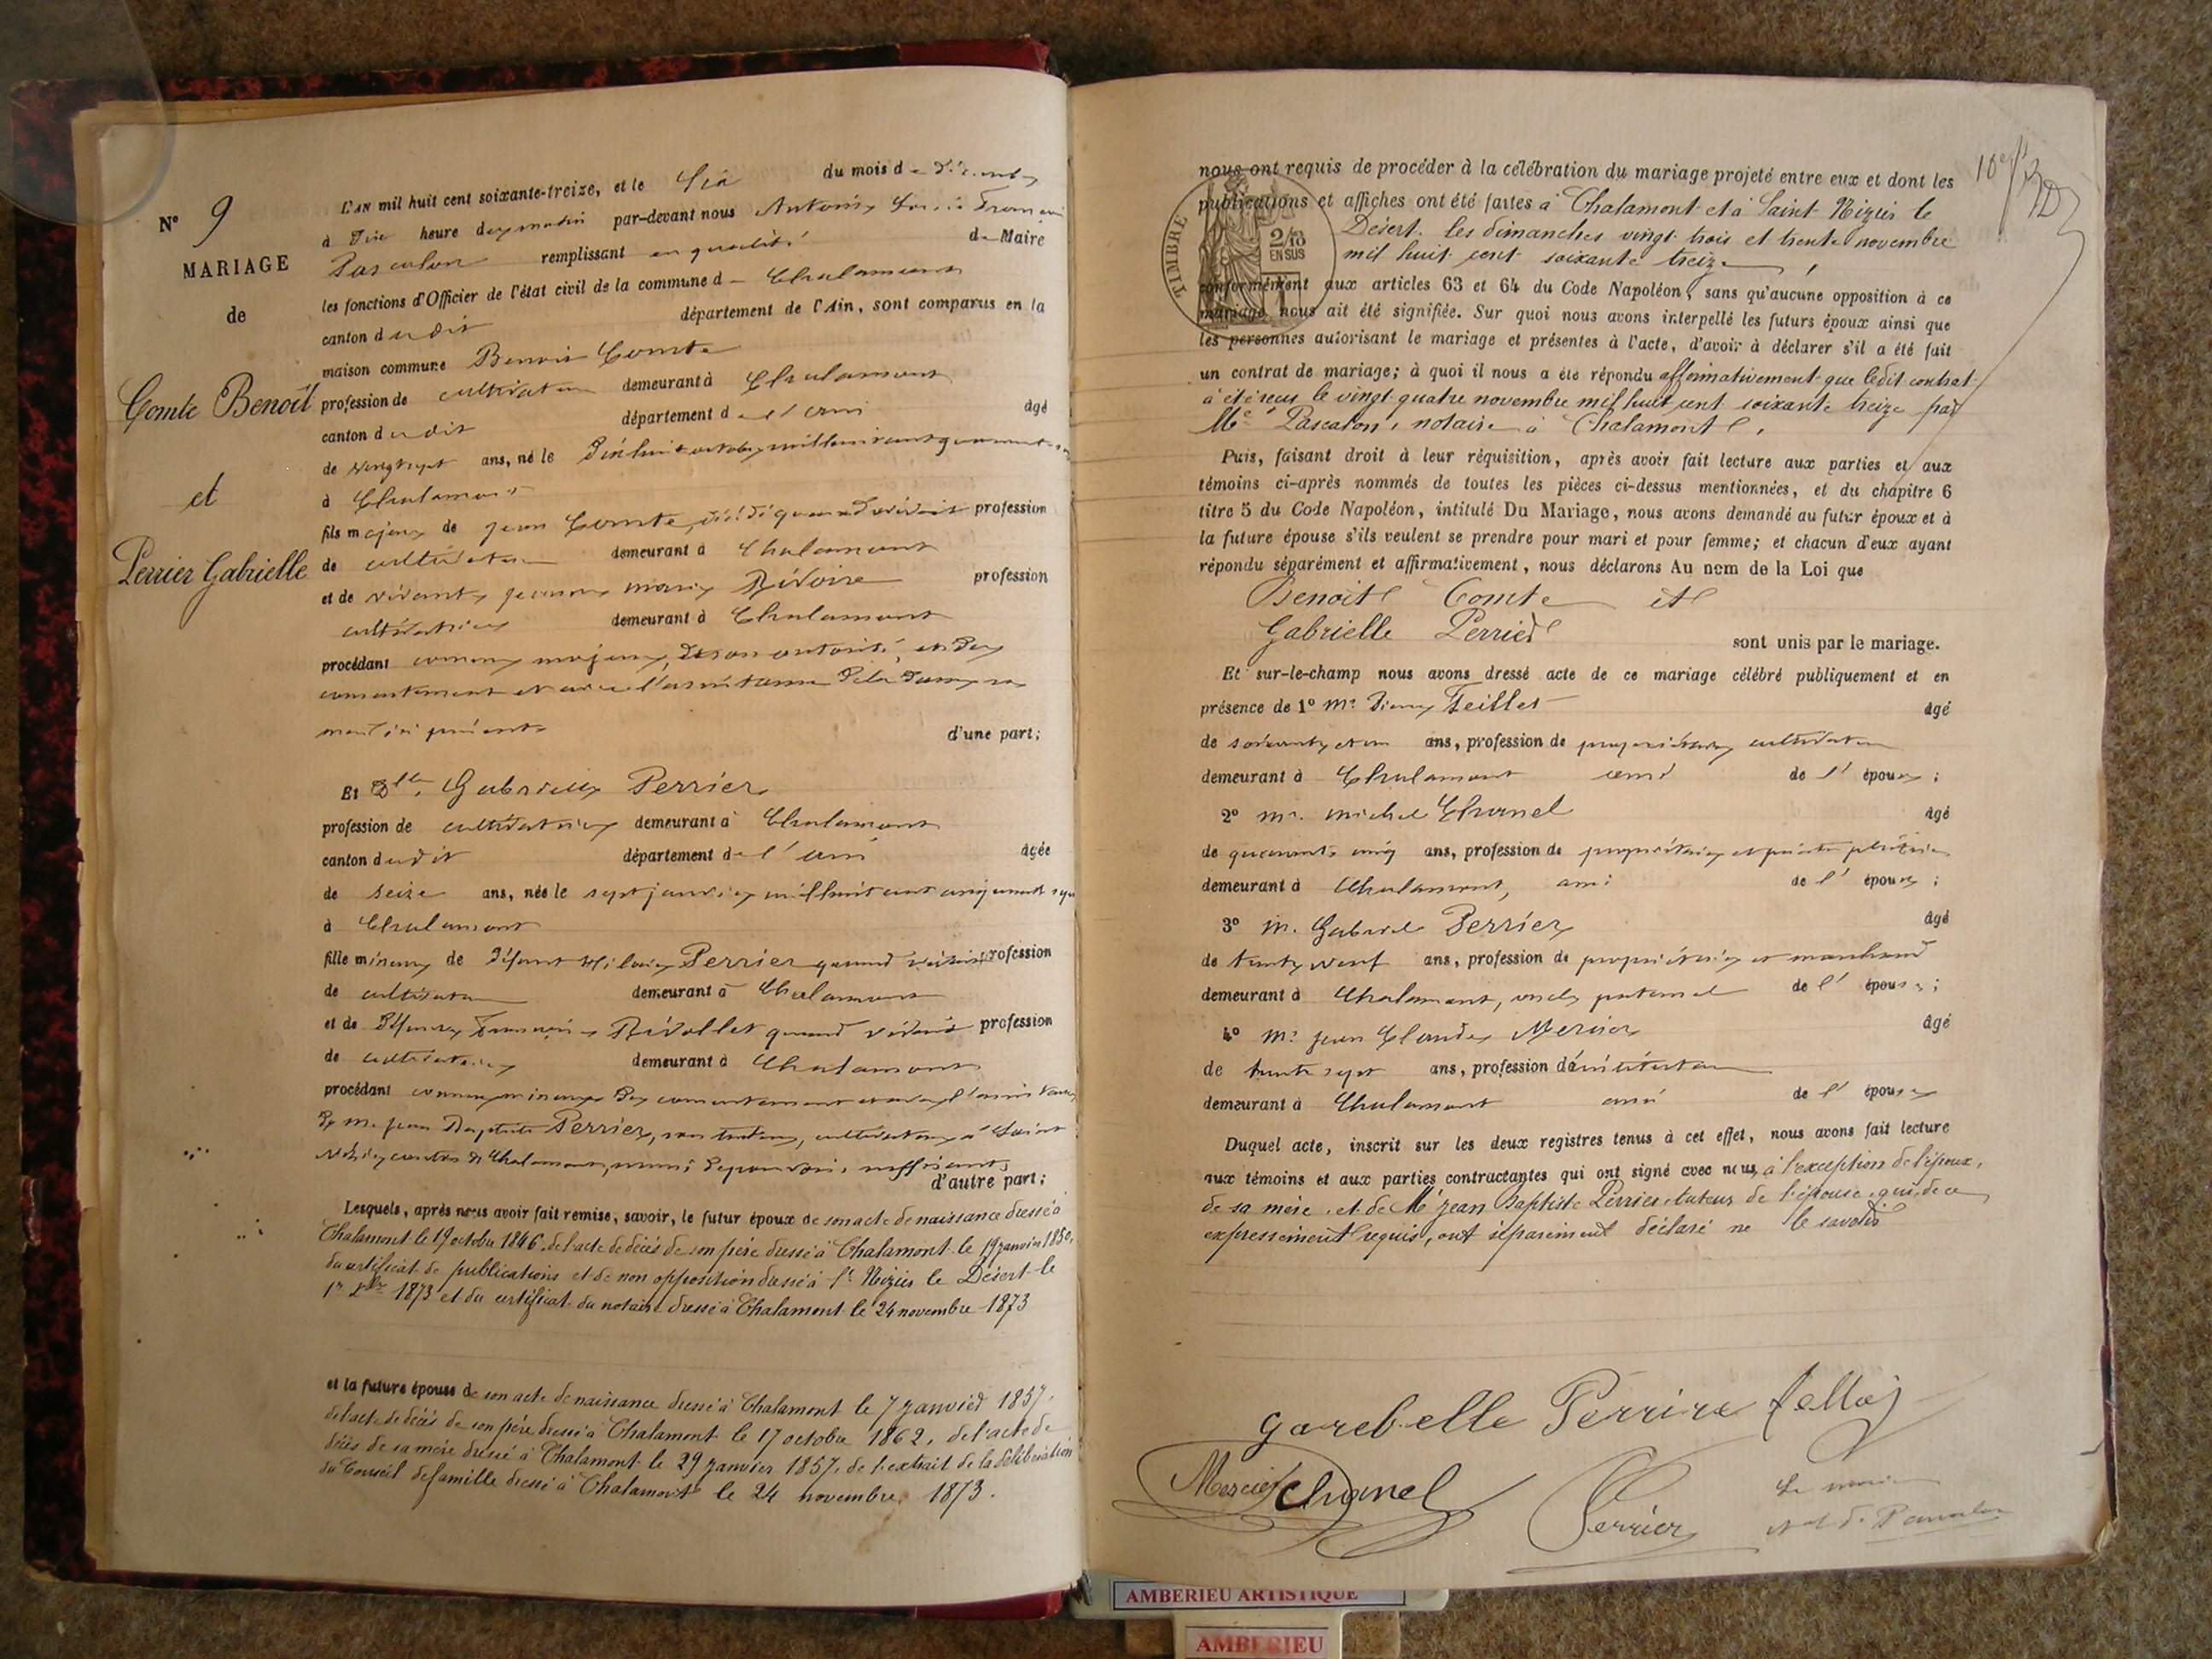 N° 9
MARIAGE
de
Comte Benoît
et
Perrier Gabrielle
L'AN mil huit cent soixante-treize, et le Six du mois de Décembre
à Dix heure du matin par-devant nous Antoine François
Pascalon remplissant en qualité de Maire
les fonctions d'Officier de l'état civil de la commune de Chalamont
canton dudit département de l'Ain, sont comparus en la
maison commune Benoit Comte
profession de cultivateur demeurant à Chalamont
canton dudit département de l'ain âgé
de vingt sept ans, né le Dix huit octobre mil huit cent quarante six
à Chalamont
fils majeur de jean Comte, décédé quand vivait profession
de cultivateur demeurant à Chalamont
et de vivante jeanne marie Rivoire profession
cultivatrice demeurant à Chalamont
procédant comme majeur, de son autorité, et du
consentement et avec l'assistance de la Dame sa
mère ici présente d'une part;
Et Dlle Gabrielle Perrier
profession de cultivatrice demeurant à Chalamont
canton dudit département de l'ain âgée
de seize ans, née le sept janvier mil huit cent cinquante sept
à Chalamont
fille mineure de Défunt Hilaire Perrier quand vivait profession
de cultivateur demeurant à Chalamont
et de Défunte Françoise Rivollet quand vivait profession
de cultivatrice demeurant à Chalamont
procédant comme mineure Du consentement et avec l'assistance
De m. jean Baptiste Perrier, son tuteur, cultivateur à Saint
Nizier canton de Chalamont, muni de pouvoirs suffisants
d'autre part;
Lesquels, après nous avoir fait remise, savoir, le futur époux de son acte de naissance dressé à
Chalamont le 19 octobre 1846, de l'acte de décès de son père dressé à Chalamont le 19 janvier 1850,
du certificat de publications et de non opposition dressé à St Nizier le Désert le
1er Xbre 1873 et du certificat du notaire dressé à Chalamont le 24 novembre 1873
et la future épouse de son acte de naissance dressé à Chalamont le 7 janvier 1857,
de l'acte de décès de son père dressé à Chalamont le 17 octobre 1862, de l'acte de
décès de sa mère dressé à Chalamont le 29 janvier 1857, de l'extrait de la délibération
du Conseil de famille dressé à Chalamont le 24 novembre 1873.
nous ont requis de procéder à la célébration du mariage projeté entre eux et dont les
publications et affiches ont été faites à Chalamont et à Saint Nizier le
Désert les dimanches vingt trois et trente novembre
mil huit cent soixante treize
TIMBRE
2/10
EN SUS
conformément aux articles 63 et 64 du Code Napoléon, sans qu'aucune opposition à ce
mariage nous ait été signifiée. Sur quoi nous avons interpellé les futurs époux ainsi que
les personnes autorisant le mariage et présentes à l'acte, d'avoir à déclarer s'il a été fait
un contrat de mariage; à quoi il nous a été répondu affirmativement que ledit contrat
a été reçu le vingt quatre novembre mil huit cent soixante treize par
Me Pascalon, notaire à Chalamont.
Puis, faisant droit à leur réquisition, après avoir fait lecture aux parties et aux
témoins ci-après nommés de toutes les pièces ci-dessus mentionnées, et du chapitre 6
titre 5 du Code Napoléon, intitulé Du Mariage, nous avons demandé au futur époux et à
la future épouse s'ils veulent se prendre pour mari et pour femme; et chacun d'eux ayant
répondu séparément et affirmativement, nous déclarons Au nom de la Loi que
Benoit Comte et
Gabrielle Perrier sont unis par le mariage.
Et sur-le-champ nous avons dressé acte de ce mariage célébré publiquement et en
présence de 1° Mr Pierre Feillet âgé
de soixante et un ans, profession de propriétaire cultivateur
demeurant à Chalamont ami de l'épouse;
2° mr. michel Chanel âgé
de quarante cinq ans, profession de propriétaire et peintre plâtrier
demeurant à Chalamont, ami de l'épouse;
3° m. Gabriel Perrier âgé
de trente neuf ans, profession de propriétaire et marchand
demeurant à Chalamont, oncle paternel de l'épouse;
4° mr jean Claude Mercier âgé
de trente sept ans, profession d'instituteur
demeurant à Chalamont ami de l'épouse
Duquel acte, inscrit sur les deux registres tenus à cet effet, nous avons fait lecture
aux témoins et aux parties contractantes qui ont signé avec nous, à l'exception de l'époux,
de sa mère, et de Mr jean Baptiste Perrier tuteur de l'épouse, qui, de ce
expressément requis, ont séparément déclaré ne le savoir
garebelle Perrire
Mercier Chanel
Perrier
Le maire
Pascalon
AMBERIEU ARTISTIQUE
AMBERIEU